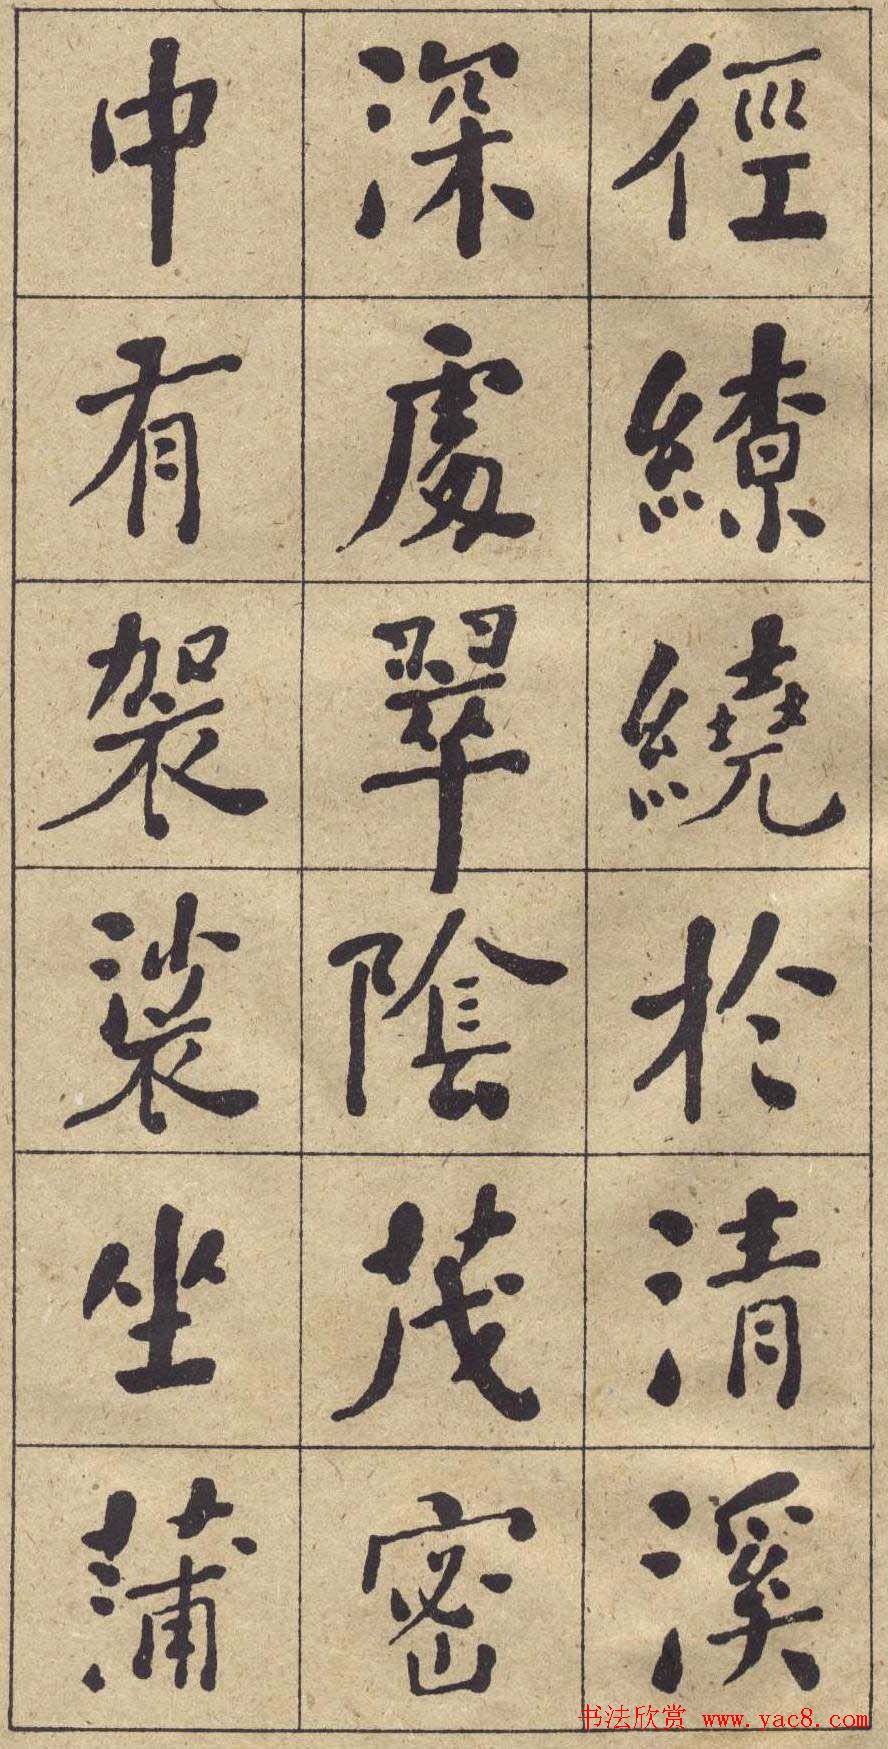 徑繚繞於清溪
深處翠陰茂密
中有袈裟坐蒲
书法欣赏 www.yac8.com